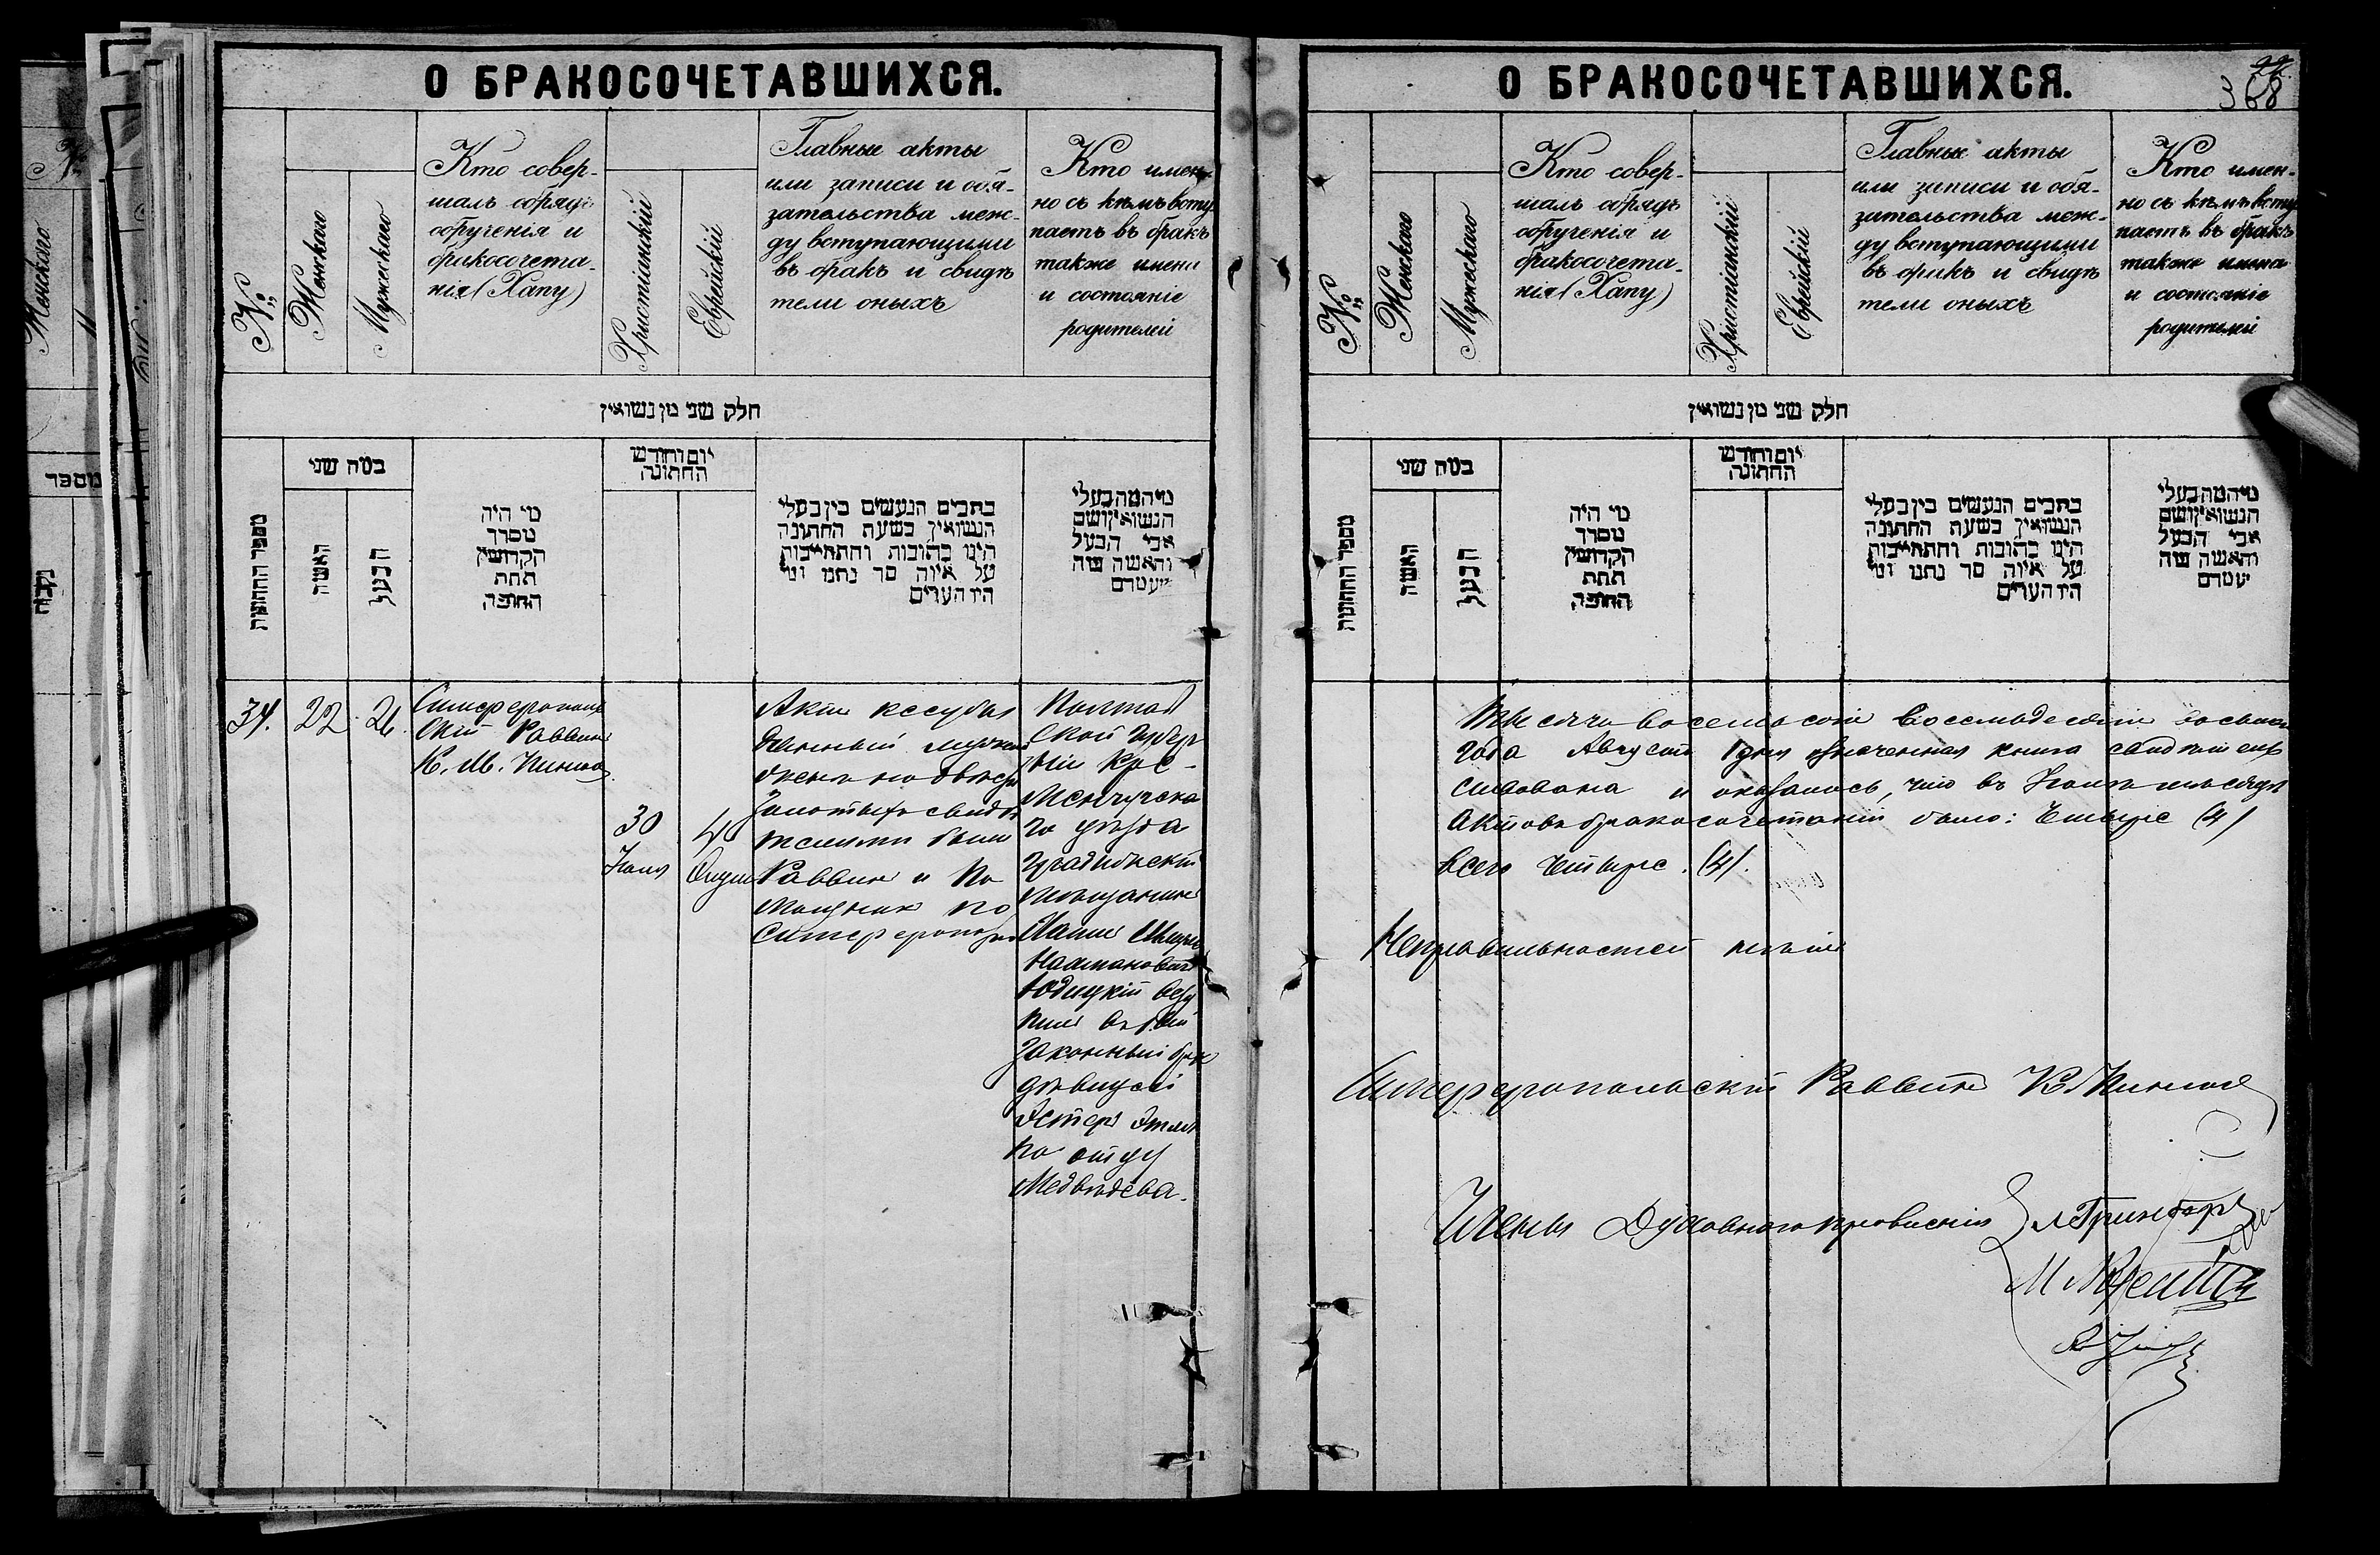 О БРАКОСОЧЕТАВШИХСЯ.
№
Женскаго
Мужескаго
Кто совер-
шалъ обрядъ
обрученія и
бракосочета-
нія (Хапу)
Христіанскій
Еврейскій
Главные акты
или записи и обя-
зательства меж-
ду вступающими
въ бракъ и свидѣ
тели оныхъ
Кто имен-
но съ кѣмъ всту
паетъ въ бракъ
также имена
и состояніе
родителей
חלק שני מן נשואין
מספר החתונות
כמה שני
האשה
הבעל
מי היה
מסדר
הקדושין
תחת
החופה
יום וחודש
החתונה
כתבים הנעשים בין בעלי
הנשואין בשעת החתונה
היינו כתובות והתחייבות
על איזה סך נתנו ומי
היו העדים
מי המה בעלי
הנשואין ושם
אבי הבעל
והאשה ומה
מעמדם
34. 22 26
Симферополь
скій Раввинъ
К. М. Пинюсъ
30
Іюля
4
Акт кесубы
данный мужемъ
женѣ на двѣсти
золотыхъ свидѣ
телями были
Раввинъ и По
мощникъ по
Симферополю
Полтав
ской губер
ніи Кре-
менчугска
го уѣзда
Градижскій
мѣщанинъ
Нахмановичъ
Юдицкій всту
пилъ въ 1-ый
законный брак
дѣвицей
Эстеръ Этля
по отцу
Медвѣдева.
О БРАКОСОЧЕТАВШИХСЯ.
368
№
Женскаго
Мужескаго
Кто совер-
шалъ обрядъ
обрученія и
бракосочета-
нія (Хапу)
Христіанскій
Еврейскій
Главные акты
или записи и обя-
зательства меж-
ду вступающими
въ бракъ и свидѣ
тели оныхъ
Кто имен-
но съ кѣмъ всту
паетъ въ бракъ
также имена
и состояніе
родителей
חלק שני מן נשואין
מספר החתונות
כמה שני
האשה
הבעל
מי היה
מסדר
הקדושין
תחת
החופה
יום וחודש
החתונה
כתבים הנעשים בין בעלי
הנשואין בשעת החתונה
היינו כתובות והתחייבות
על איזה סך נתנו ומי
היו העדים
מי המה בעלי
הנשואין ושם
אבי הבעל
והאשה ומה
מעמדם
Тысяча восемьсотъ восемьдесятъ восьмаго
года Августа 1 дня означенная книга свидѣтель
ствована и оказалось, что въ Іюлѣ мѣсяцѣ
актовъ бракосочетаній было: Четыре (4)
всего четыре. (4).
Неправильностей нѣтъ
Симферопольскій Раввинъ К. Пинюсъ
Члены Духовнаго правленія